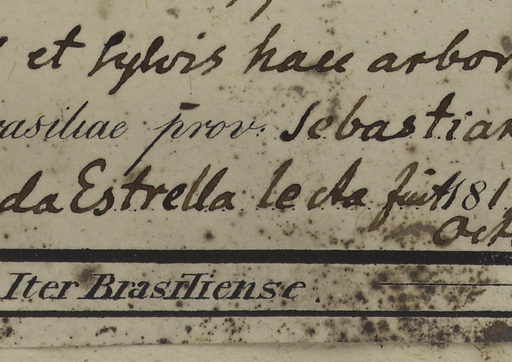 et sylvis haec arbor
rasiliae prov. Sebastian
da Estrella lecta fuit 181
Oct
Iter Brasiliense.